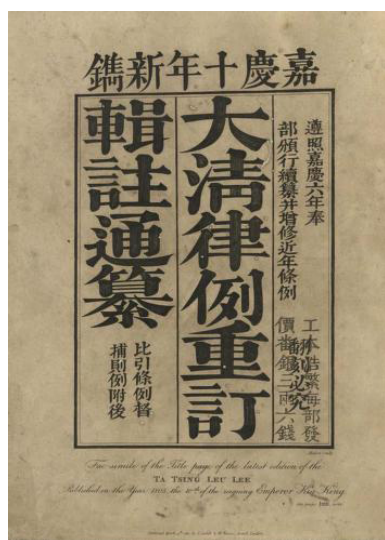 嘉慶十年新鐫
遵照嘉慶六年奉
部頒行續纂并增修近年條例
工本浩繁每部發
價番銀三兩六錢
翻刻必究
大清律例重訂
輯註通纂
比引條例督
捕則例附後
Fac-simile of the Title page of the latest edition of the
TA TSING LEU LEE
Published in the Year 1805, the 10th of the reigning Emperor Kia-King